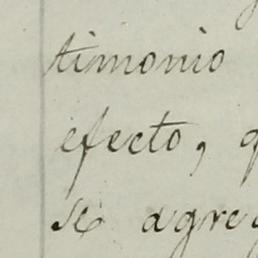 timonio
efecto, q
se agreg